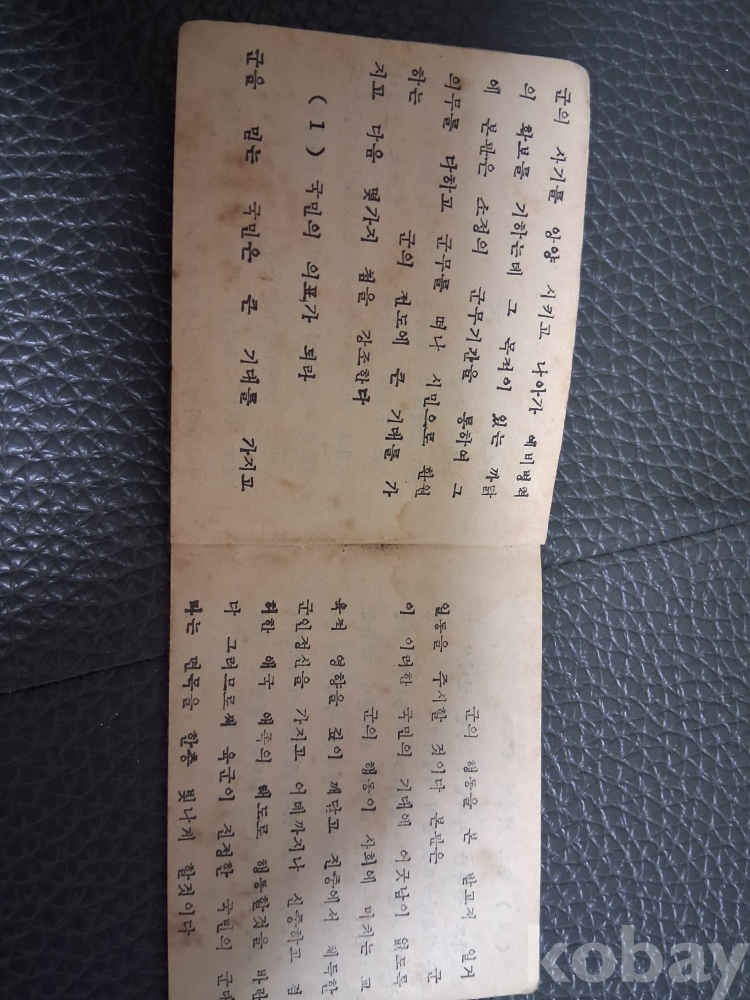 군의 사기를 앙양 시키고 나아가 예비병력
의 확보를 기하는데 그 목적이 있는 까닭
에 본관은 소정의 군무기간을 통하여 그
의무를 다하고 군무를 떠나 시민으로 환원
하는 군의 전도에 큰 기대를 가
지고 다음 몇가지 점을 강조한다
(1) 국민의 의표가 되라
군을 믿는 국민은 큰 기대를 가지고
군의 행동을 본 받고저 일거
일동을 주시할 것이다 본관은 군
이 이러한 국민의 기대에 어긋남이 없도록
군의 행동이 사회에 미치는 교
육적 영향을 깊이 깨닫고 진중에서 체득한
군인정신을 가지고 어데까지나 신중하고 겸
허한 애국 애족의 태도로 행동할것을 바란
다 그러므로써 육군이 진정한 국민의 군대
라는 면목을 한층 빛나게 할것이다
kobay